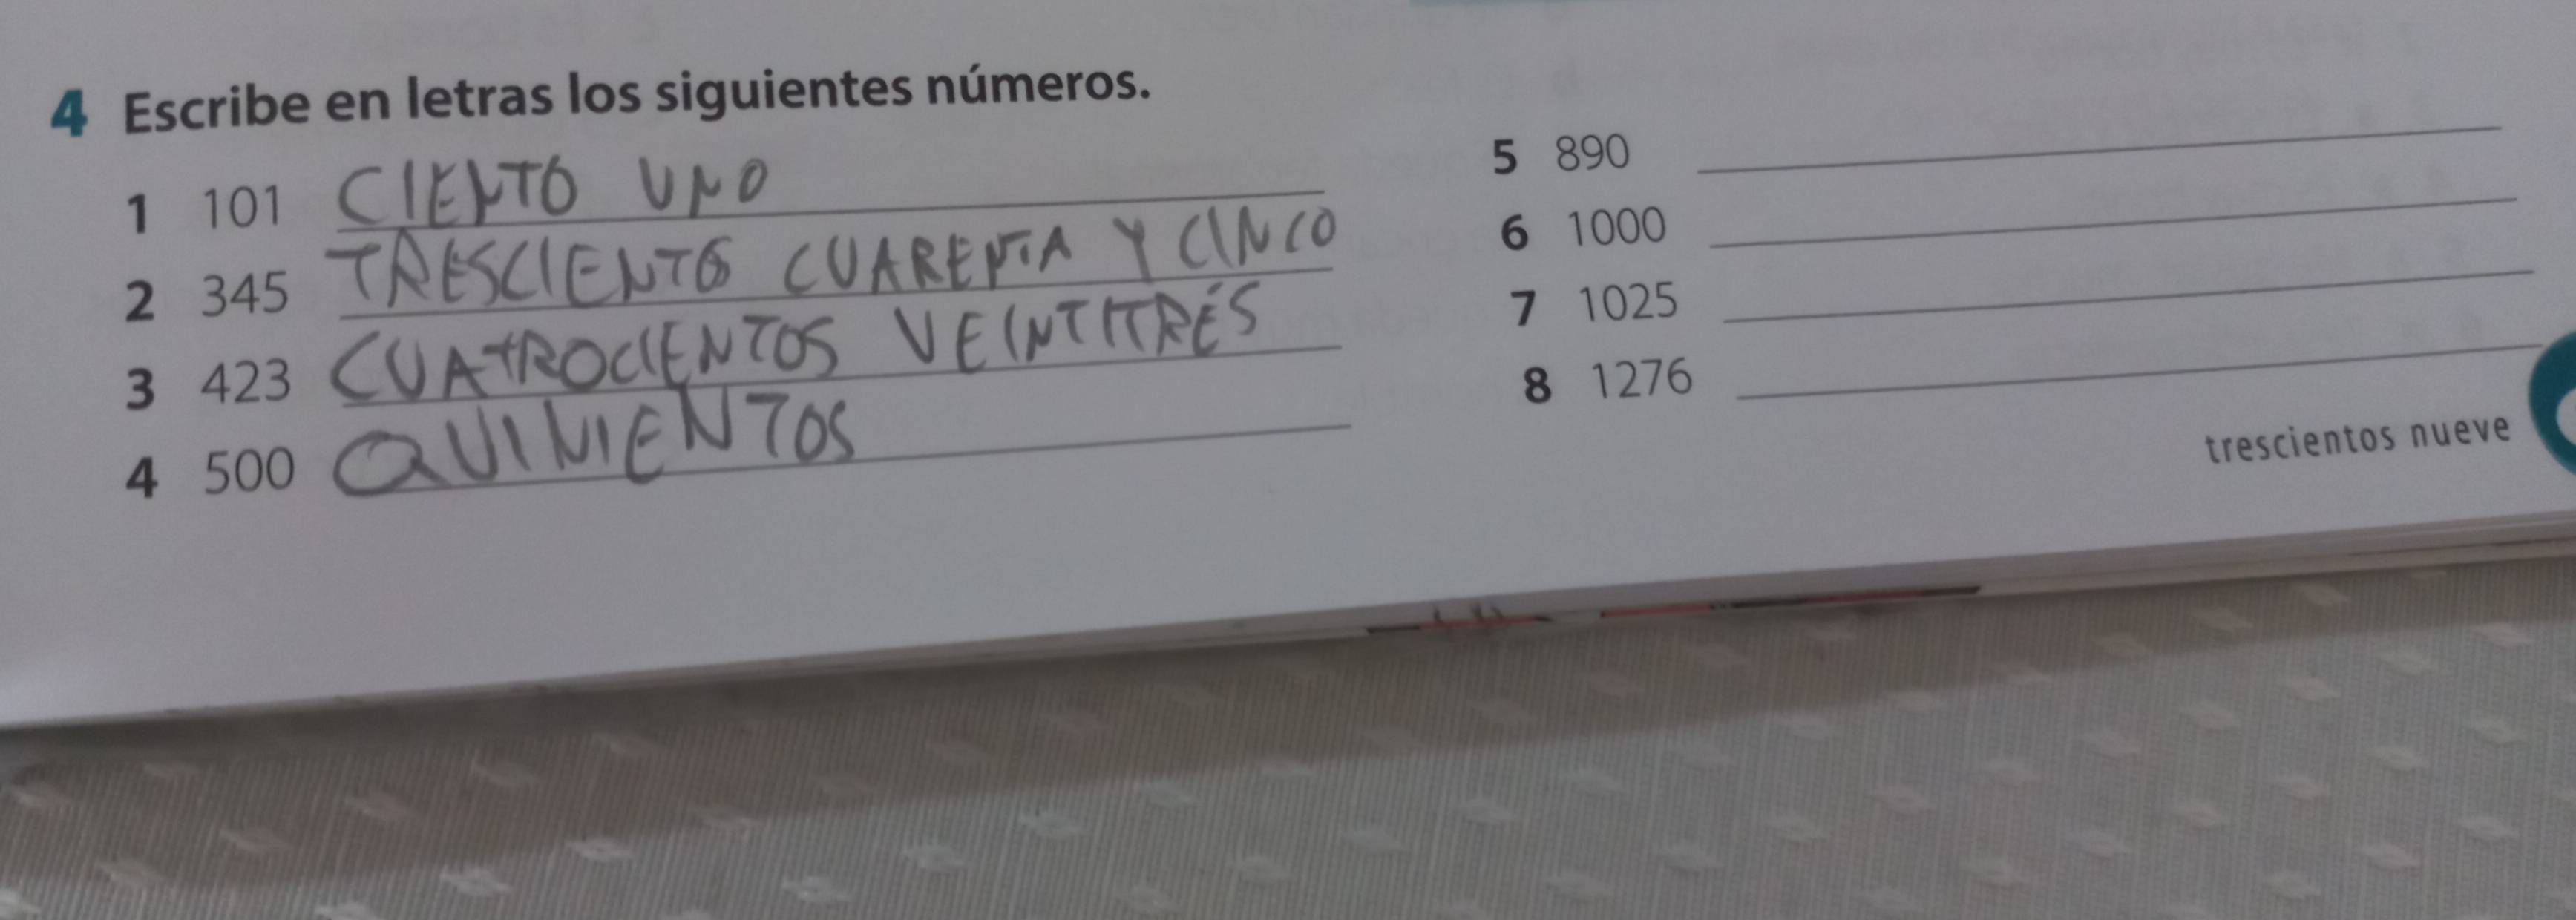 4 Escribe en letras los siguientes números.
1 101 CIENTO UNO
2 345 TRESCIENTOS CUARENTA Y CINCO
3 423 CUATROCIENTOS VEINTITRÉS
4 500 QUINIENTOS
5 890
6 1000
7 1025
8 1276
trescientos nueve